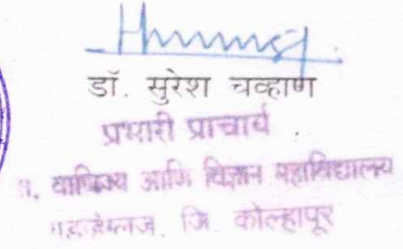 डॉ. सुरेश चव्हाण
प्रभारी प्राचार्य
, वाणिज्य आणि विज्ञान महाविद्यालय
जि. कोल्हापूर